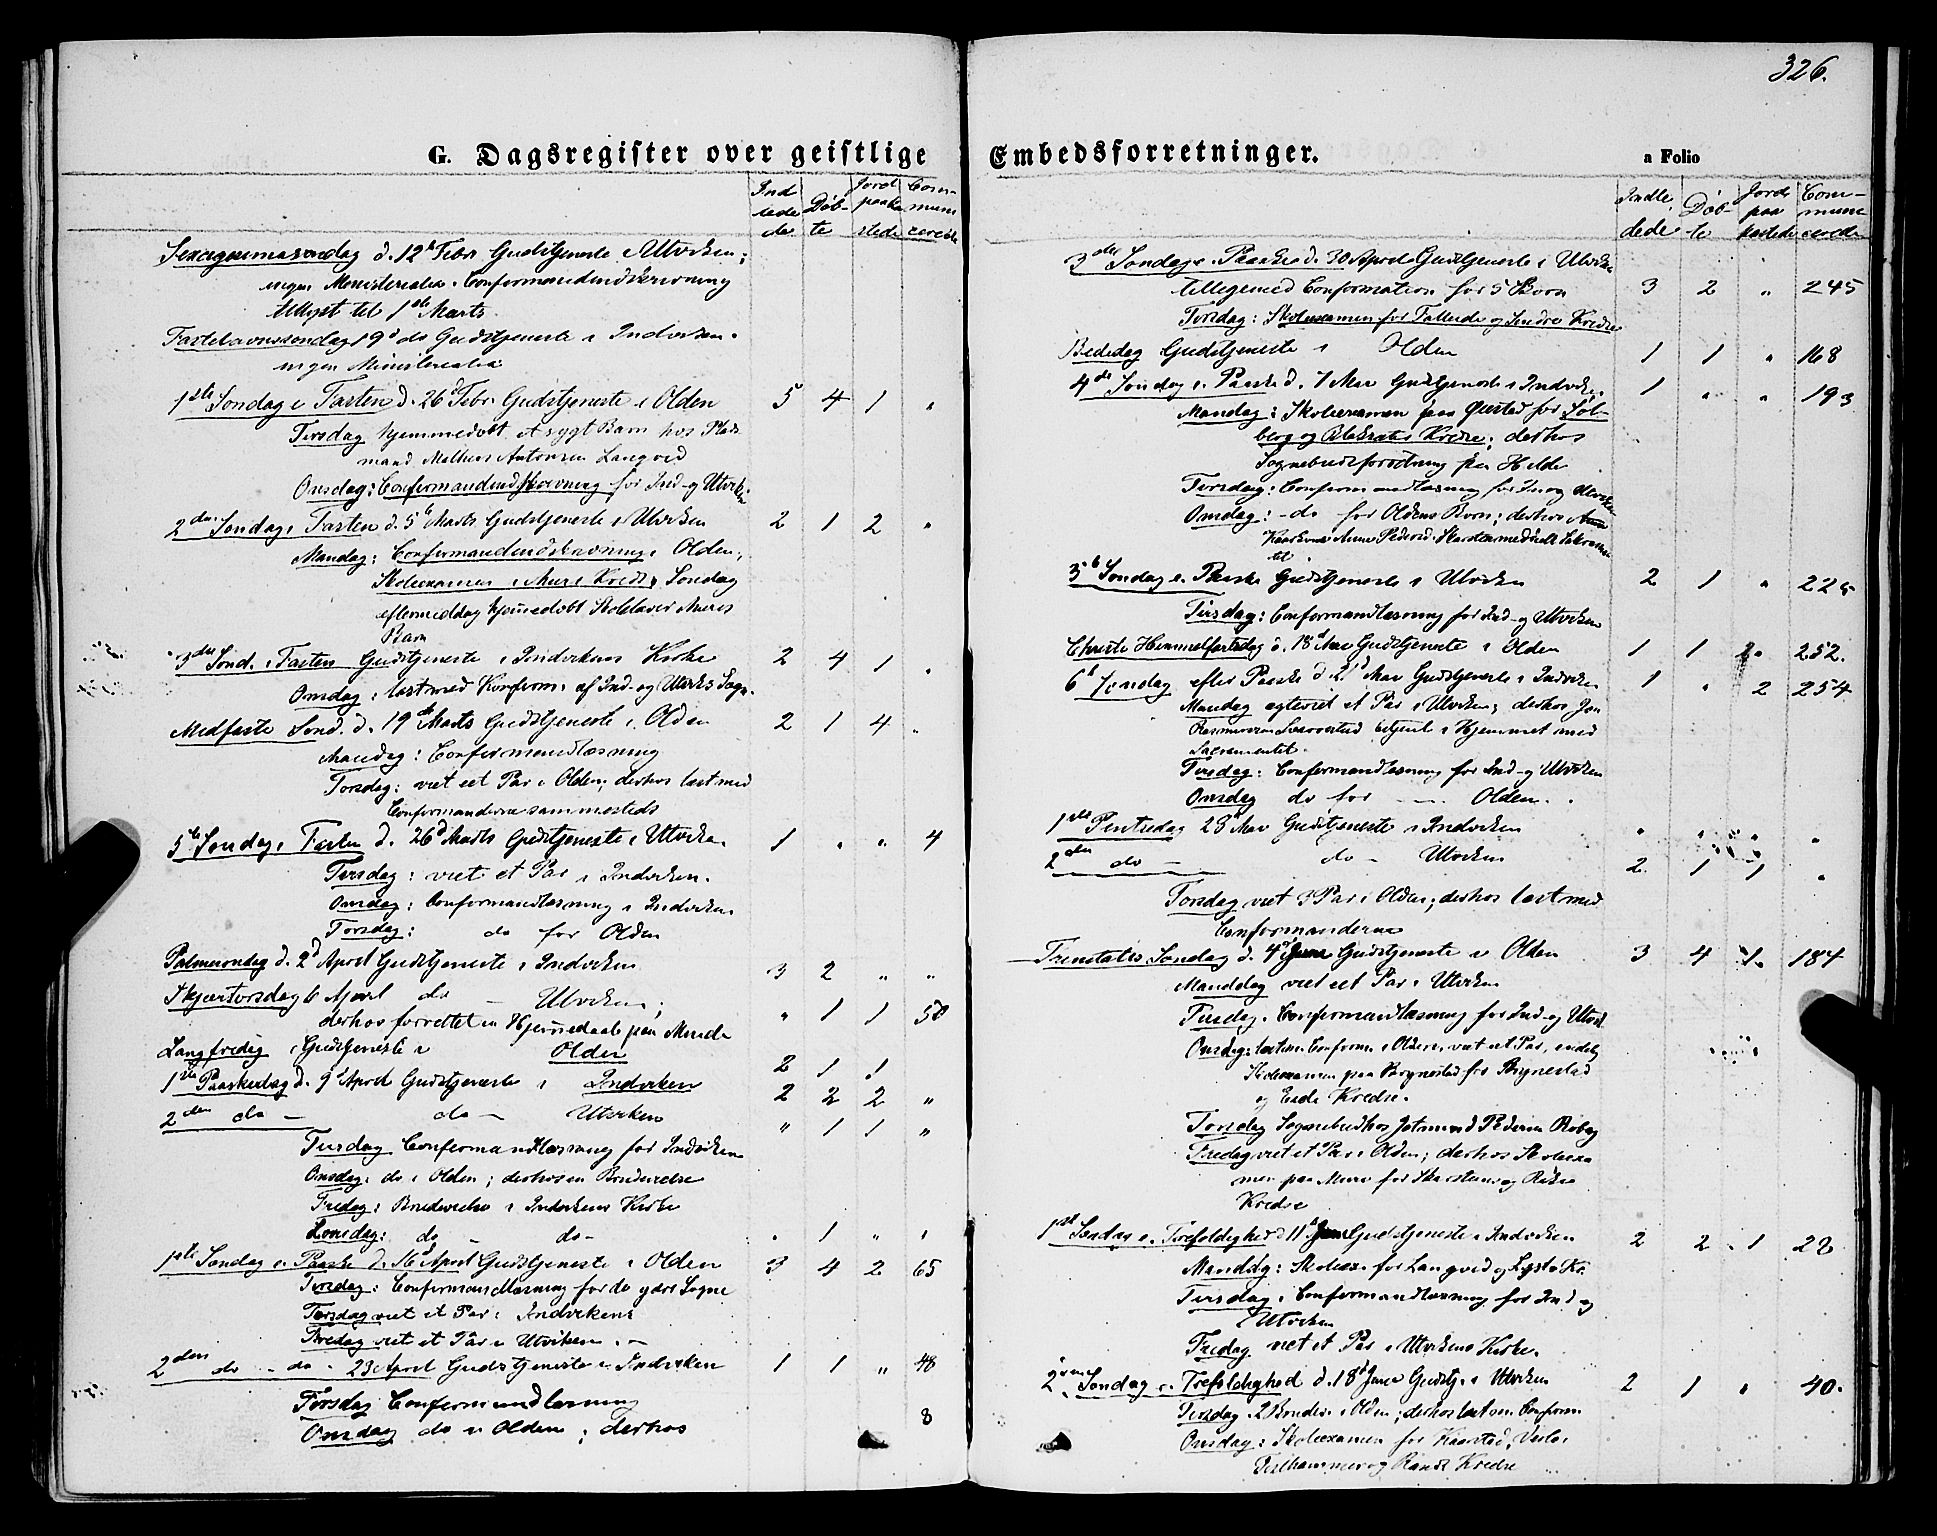 326.
G. Dagsregister over geistlige Embedsforretninger.
a Folio
Ind- lede de Døb- te Jord paaka stede Com- muni cerede
Sexagesimasøndag d. 12t Febr Gudstjeneste i Utviken;
ingen Ministerialia. Confirmandindskrivning
tillyst til 1ste Marts.
Fastelavnssøndag 19d do Gudstjeneste i Indviken.
ingen Ministerialia
1ste Søndag i Fasten d. 26d Febr. Gudstjeneste i Olden 5 4 1 "
Tirsdag hjemmedøbt et sygt Barn hos Plads
mand Mathias Antonsen Langvid
Onsdag: Confirmandindskrivning for Ind- og Utviken
2den Søndag i Fasten d. 5t Marts Gudstjeneste i Utviken 2 1 2 "
Mandag: Confirmandindskrivning i Olden;
Skoleexamen i Muri Kreds, Søndag
eftermiddag hjemmedøbt Skolelærer Muris
Barn
3die Sønd. i Fasten Gudstjeneste i Indvikens Kirke 2 4 1 "
Onsdag: læst med Konfirm. af Ind- og Utviks Sogn.
Midfaste Sønd. d. 19de Marts Gudstjeneste i Olden 2 1 4 "
Mandag: Confirmandlæsning
Torsdag: viet eet Par i Olden; derhos læst med
Confirmanderne sammesteds
5te Søndag i Fasten d. 26d Marts Gudstjeneste i Utviken 1 " " 4
Tirsdag: viet et Par i Indviken.
Onsdag: Confirmandlæsning i Indviken
Torsdag: do for Olden
Palmesøndag d. 2d April Gudstjeneste i Indviken 3 2 " "
Skjærtorsdag 6 April do – Utviken; " 1 1 50
derhos forrettet en Hjemmedaab paa
Langfredag Gudstjeneste i Olden 2 1 1
1ste Paaskedag d. 9d April Gudstjeneste i Indviken 2 2 2 "
2den do – do – Utviken " 1 1 "
Tirsdag Confirmandlæsning for Indviken
Onsdag: do i Olden; derhos en Brudevielse
Fredag: Brudevielse i Indvikens Kirke
Lørsdag: do – do – " 1 " "
1ste Søndag e. Paaske d. 16d April Gudstjeneste i Olden 3 4 2 65
Tirsdag: Confirmandlæsning for de ydre Sogne
Torsdag viet et Par i Indvikens
Fredag viet et Par i Utviken. –
2den do – do – 23 April Gudstjeneste i Indviken 1 1 " 48
Tirsdag Confirmandlæsning
Onsdag do i Olden; derhos 8
Indle dede Døb- te Jord paa kastede Com- muni cerede
3die Søndag e. Paaske d. 30 April Gudstjeneste i Utviken
tilligemed Confirmation for 5 Børn 3 2 " 245
Tirsdag: Skoleexamen for Kredse
Bededag Gudstjeneste i Olden 1 1 " 168
4de Søndag e. Paaske d. 7 Mai Gudstjeneste i Indviken 1 " " 193
Mandag: Skoleexamen paa for Sol-
berg og Kredse; derhos
Sognebudsforretning paa Hilde
Tirsdag: Confirmandlæsning for Ind og Utviken
Onsdag: – do for Oldens Børn; derhos
til
5t Søndag e. Paaske Gudstjeneste i Utviken 2 1 " 225
Tirsdag: Confirmandlæsning for Ind- og Utviken
Christi Himmelfartsdag d. 18d Mai Gudstjeneste i Olden 1 1 2 252.
6t Søndag efter Paaske d. 21d Mai Gudstjeneste i Indviken 1 " 2 254
Mandag ægteviet et Par i Utviken; derhos
betjent i Hjemmet med
Sacramentet.
Tirsdag: Confirmandlæsning for Ind- og Utviken
Onsdag do for – Olden.
1ste Pintsedag 28d Mai Gudstjeneste i Indviken " " " "
2den do – do – Utviken 2 1 1 "
Torsdag viet 3 Par i Olden; derhos læst med
Confirmanderne
Trinitatis Søndag d. 4d Juni Gudstjeneste i Olden 3 4 1 184
Manddag viet eet Par i Utviken
Tirsdag. Confirmandlæsning for Ind- og Utvik
Onsdag: Confirm. i Olden, viet et Par,
Skoleexamen paa for
og Kredse.
Torsdag Sognebud hos
Fredag viet et Par i Olden; derhos Skoleexa
men paa Muri for og
Kredse
1st Søndag e. Trefoldighed d. 11d Juni Gudstjeneste i Indviken 2 2 1 22
Mandag: Skoleex. for Langvid og Kr.
Tirsdag: Confirmandlæsning for Ind og
Utviken
Fredag viet et Par i Utvikens Kirke.
2den Søndag e. Trefoldighed d. 18d Juni Gudstj. i Utviken 2 1 " 40.
Tirsdag 2 i Olden; derhos læst m. Confirm
Onsdag: Skoleexamen for
og Kredse